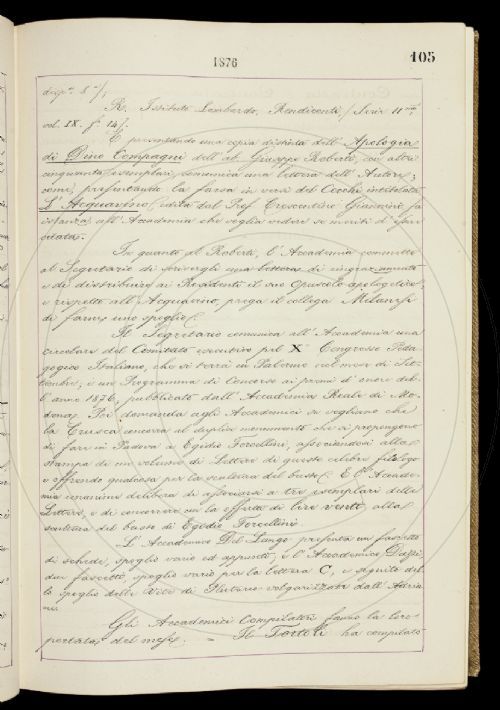 1876
105
disp.
R. Istituto Lombardo, Rendiconti, Serie II,
vol. IX. f. 14.
E presentando una copia distinta dell'Apologia
di Dino Compagni dell'ab. Giuseppe Roberti, con altri
cinquanta esemplari, comunica una lettera dell'Autore;
come, presentando la farsa in versi del Cecchi intitolata
L'Acquavino, edita dal Prof. Crescentino Giannini, fa
istanza all'Accademia che voglia vedere se meriti d'esser
citata.
In quanto al Roberti, l'Accademia commette
al Segretario di scrivergli una lettera di ringraziamento
e di distribuire ai Residenti il suo opuscolo apologetico:
e rispetto all'Acquavino, prega il collega Milanesi
di farne uno spoglio.
Il Segretario comunica all'Accademia una
circolare del Comitato esecutivo pel X Congresso Peda
gogico Italiano, che si terrà in Palermo nel mese di Set
tembre; e un Programma di Concorso ai premi d'onore del
l'anno 1876, pubblicato dall'Accademia Reale di Mo
dena. Poi domanda agli Accademici se vogliano che
la Crusca concorra al duplice monumento che si propongono
di fare in Padova a Egidio Forcellini, associandosi alla
stampa di un volume di Lettere di questo celebre filologo
e offrendo qualcosa per la scultura del busto. E l'Accade
mia unanime delibera di associarsi a tre esemplari delle
Lettere, e di concorrere con la offerta di lire venti, alla
scultura del busto di Egidio Forcellini.
L'Accademico Del Lungo presenta un fascetto
di schede, spoglio vario ed appunti, e l'Accademico Dazzi,
due fascetti, spoglio vario per la lettera C, e seguito del
lo spoglio delle Vite di Plutarco volgarizzate dall'Adria
ni.
Gli Accademici Compilatori fanno la loro
portata del mese. = Il Tortoli ha compilato